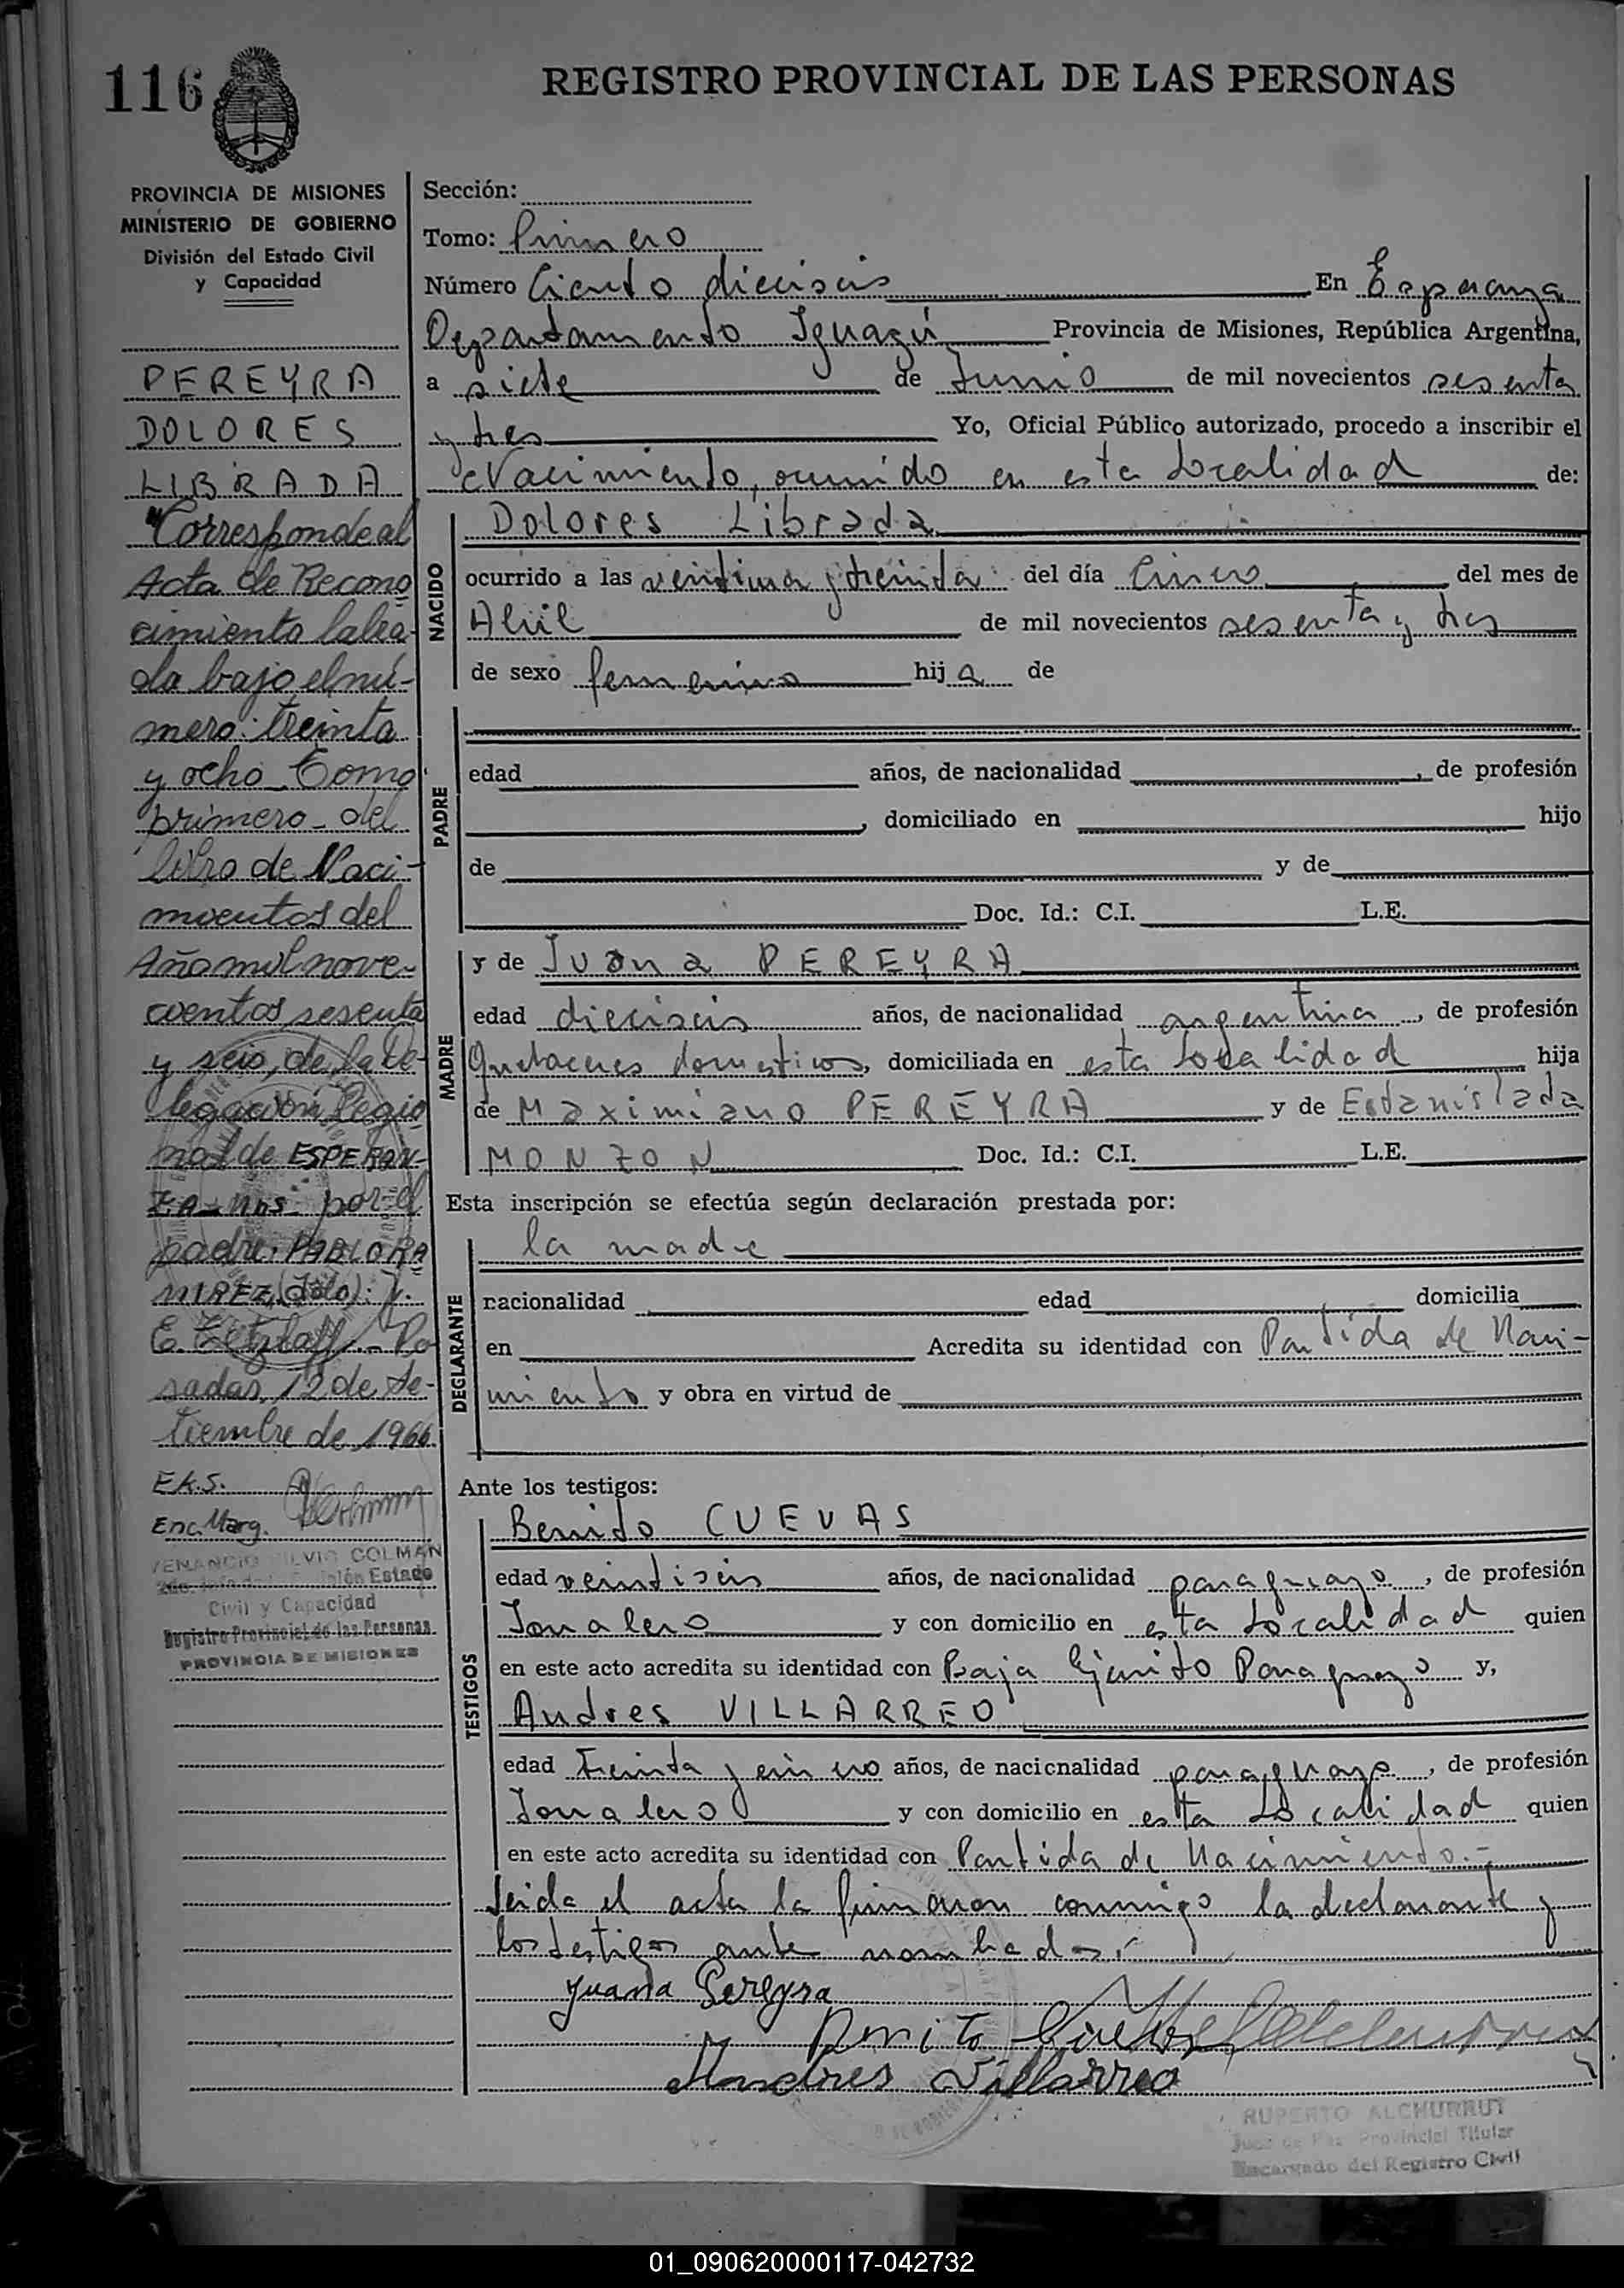 116
REGISTRO PROVINCIAL DE LAS PERSONAS
PROVINCIA DE MISIONES
MINISTERIO DE GOBIERNO
División del Estado Civil
y Capacidad
PEREYRA
DOLORES
LIBRADA
"Corresponde al
Acta de Recono
cimiento labra-
da bajo el nú-
mero: treinta
y ocho Tomo
primero - del
libro de Naci-
mientos del
Año mil nove-
cientos sesenta
y seis, de la De-
legación Regio
nal de ESPERAN-
ZA - Mns. por el
padre: PABLO RA
MIREZ, (Fdo): J.
E.
sadas, 12 de Se-
tiembre de 1966.
E.K.S.
Enc. Marg.
VENANCIO SILVIO COLMAN
2do. Jefe de División Estado
Civil y Capacidad
Registro Provincial de las Personas
PROVINCIA DE MISIONES
Sección:
Tomo: Primero
Número Ciento dieciseis En Esperanza
Departamento Iguazú Provincia de Misiones, República Argentina,
a siete de Junio de mil novecientos sesenta
y tres Yo, Oficial Público autorizado, procedo a inscribir el
Nacimiento, ocurrido en esta Localidad de:
NACIDO
Dolores Librada
ocurrido a las veintiuna y treinta del día Cinco del mes de
Abril de mil novecientos sesenta y tres
de sexo femenino hija de
PADRE
edad años, de nacionalidad , de profesión
, domiciliado en hijo
de y de
Doc. Id.: C.I. L.E.
MADRE
y de Juana PEREYRA
edad dieciseis años, de nacionalidad argentina, de profesión
Quehaceres domesticos, domiciliada en esta Localidad hija
de Maximiano PEREYRA y de Estanislada
MONZON Doc. Id.: C.I. L.E.
Esta inscripción se efectúa según declaración prestada por:
DECLARANTE
la madre
nacionalidad edad domicilia
en Acredita su identidad con Partida de Naci-
miento y obra en virtud de
Ante los testigos:
TESTIGOS
Benito CUEVAS
edad veintiseis años, de nacionalidad paraguayo, de profesión
Jornalero y con domicilio en esta Localidad quien
en este acto acredita su identidad con Baja Ejercito Paraguayo y,
Andres VILLARREO
edad treinta y cinco años, de nacionalidad paraguayo, de profesión
Jornalero y con domicilio en esta Localidad quien
en este acto acredita su identidad con Partida de Nacimiento.-
Leida el acta la firmaron conmigo la declarante y
los testigos ante nombrados.
Juana Pereyra
Benito Cuevas
Andres Villarreo
RUPERTO ALCHURRUT
Juez de Paz Provincial Titular
Encargado del Registro Civil
01_090620000117-042732